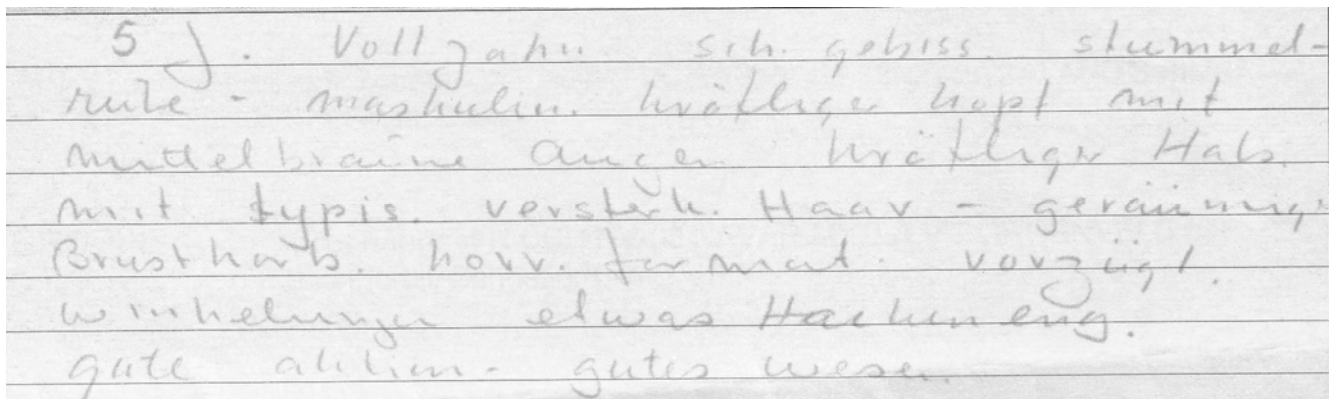 5 J. Vollzahn sch. gebiss. stummel-
rute - maskulin. kräftiger kopf mit
mittelbraune Augen kräftiger Hals.
mit typis. verstärk. Haar - geräumige
Brustkorb. korr. format. vorzügl.
winkelungen etwas Hacken eng.
gute aktion - gutes wesen.